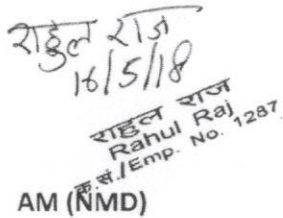 राहुल राज
16/5/18
राहुल राज
Rahul Raj
क्र.सं./Emp. No. 1287
AM (NMD)